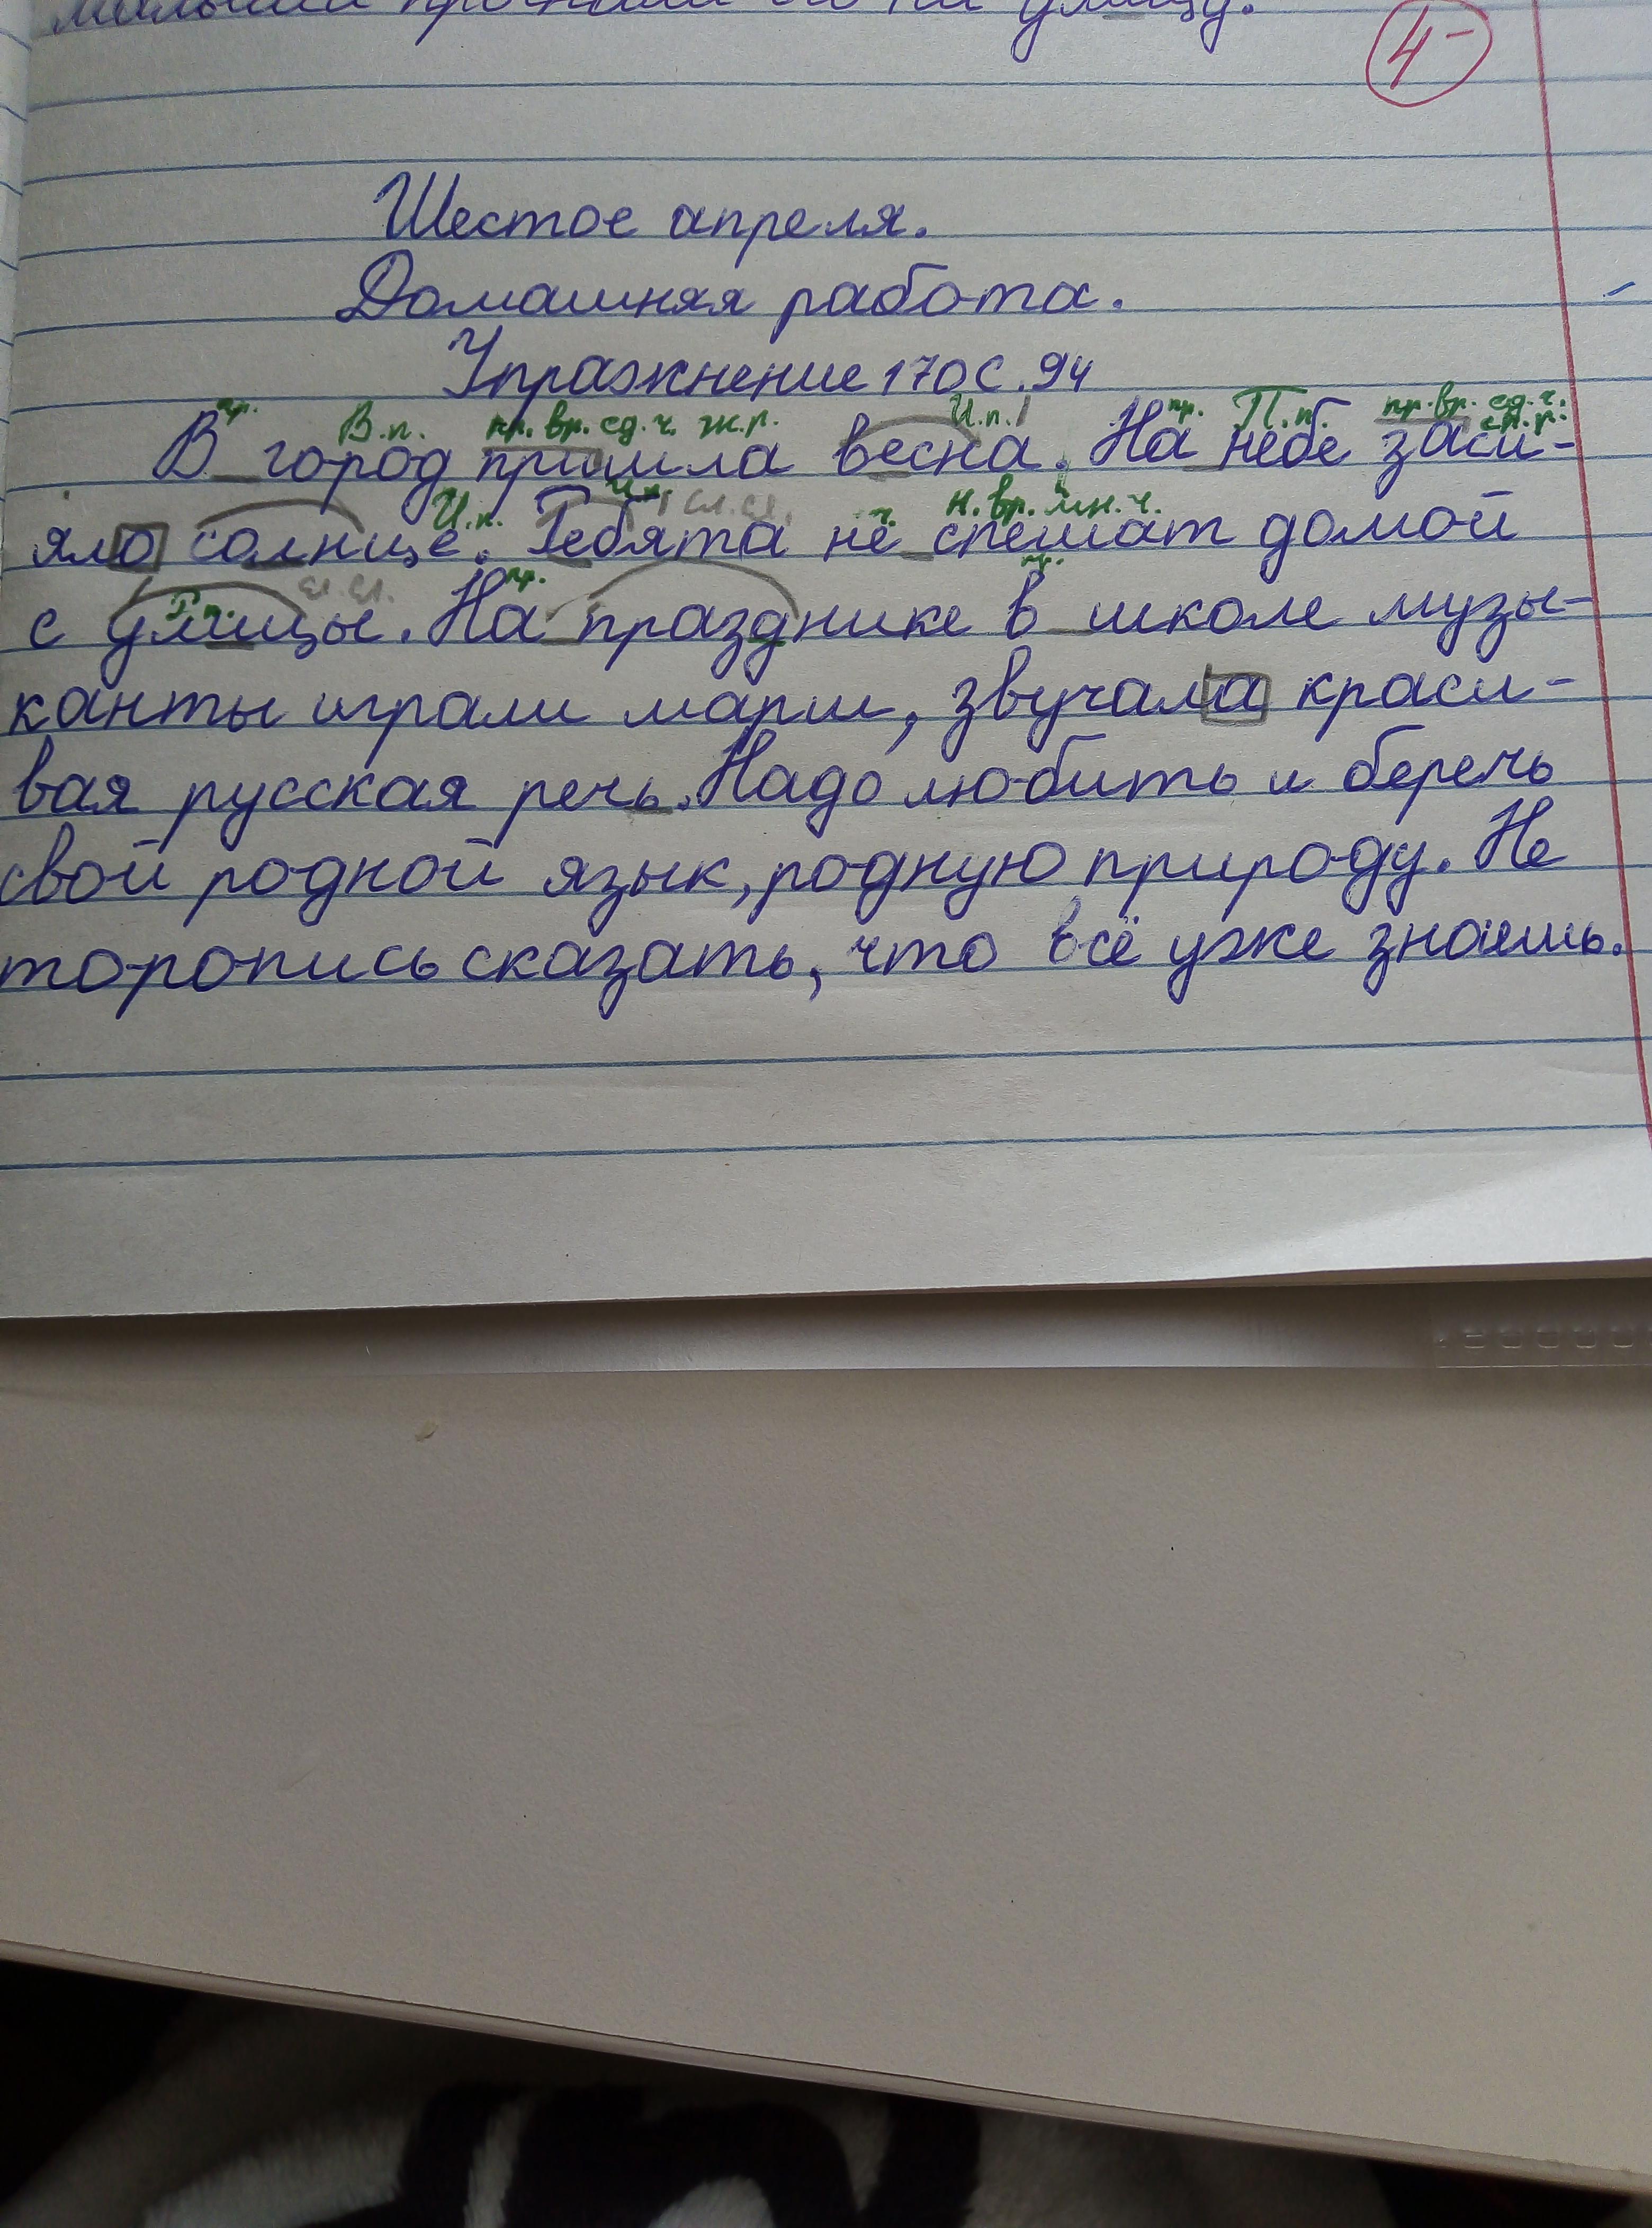 на улицу.
4-
Шестое апреля.
Домашняя работа.
Упражнение 170 с. 94
пр. В.п. пр. вр. ед. ч. ж.р. И.п. пр. П.п. пр. вр. ед. ч. ср. р.
В город пришла весна. На небе заси-
И.п. И.п. сл.сл. ч. н. вр. мн. ч.
яло солнце. Ребята не спешат домой
Р.п. сл.сл. пр. пр.
с улицы. На празднике в школе музы-
канты играли марш, звучала краси-
вая русская речь. Надо любить и беречь
свой родной язык, родную природу. Не
торопись сказать, что всё уже знаешь.